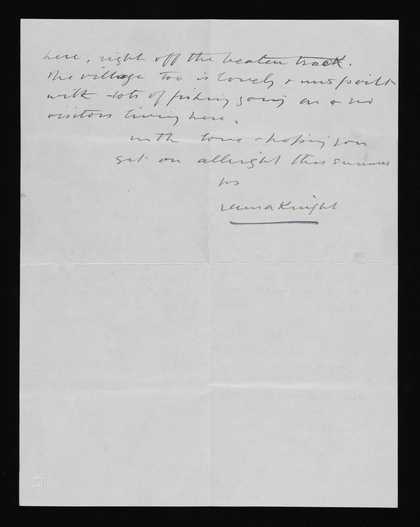 here, right off the beaten track.
The village too is lovely & unspoilt
with lots of fishing going on & no
visitors living here.
with love & hoping you
get on allright this summer
yrs
Laura Knight